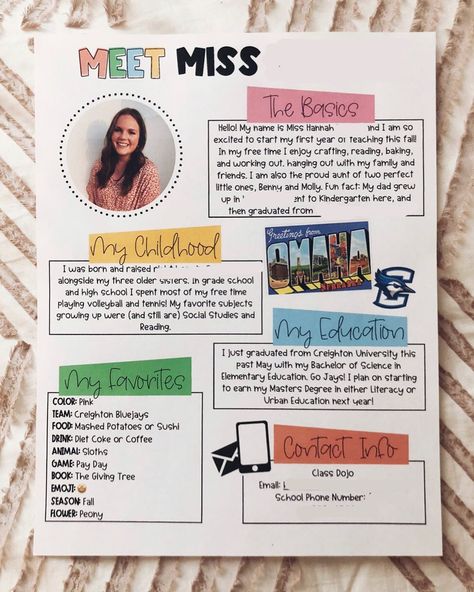 MEET MISS
The Basics
Hello! My name is Miss Hannah and I am so
excited to start my first year of teaching this fall!
In my free time I enjoy crafting, reading, baking,
and working out, hanging out with my family and
friends. I am also the proud aunt of two perfect
little ones, Benny and Molly. Fun fact: My dad grew
up in nt to Kindergarten here, and
then graduated from
My Childhood
I was born and raised
alongside my three older sisters. In grade school
and high school I spent most of my free time
playing volleyball and tennis! My favorite subjects
growing up were (and still are) Social Studies and
Reading.
Greetings from
OMAHA
NEBRASKA
My Education
I just graduated from Creighton University this
past May with my Bachelor of Science in
Elementary Education. Go Jays! I plan on starting
to earn my Masters Degree in either Literacy or
Urban Education next year!
My Favorites
COLOR: Pink
TEAM: Creighton Bluejays
FOOD: Mashed Potatoes or Sushi
DRINK: Diet Coke or Coffee
ANIMAL: Sloths
GAME: Pay Day
BOOK: The Giving Tree
EMOJI: 🥰
SEASON: Fall
FLOWER: Peony
Contact Info
Class Dojo
Email:
School Phone Number: